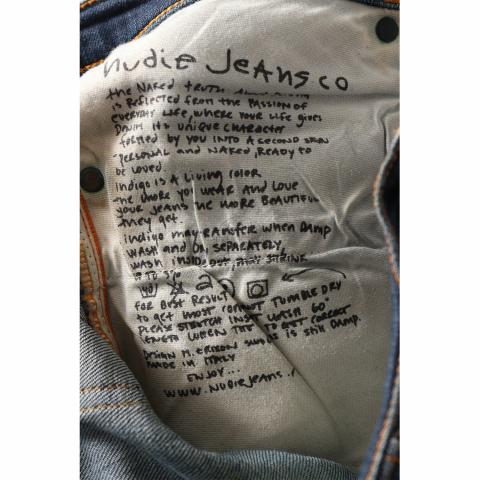 nudie Jeans co
the NAKED truth
is Reflected from the PASSION of
everyday Life, where your Life gives
Denim its unique character
formed by you into a second skin
-personal and naked, ready to
be loved.
Indigo is a Living color
the more you wear and love
your jeans the more beautiful
they get.
indigo may transfer when damp
WASH and Dry SEPARATELY,
WASH inside out, may shrink
up to 3%
for Best Result
to get most tumble dry
please stretch wash 60°
length when to get correct
is still damp.
Design M. Erixon
made in Italy
ENJOY...
www.nudiejeans.